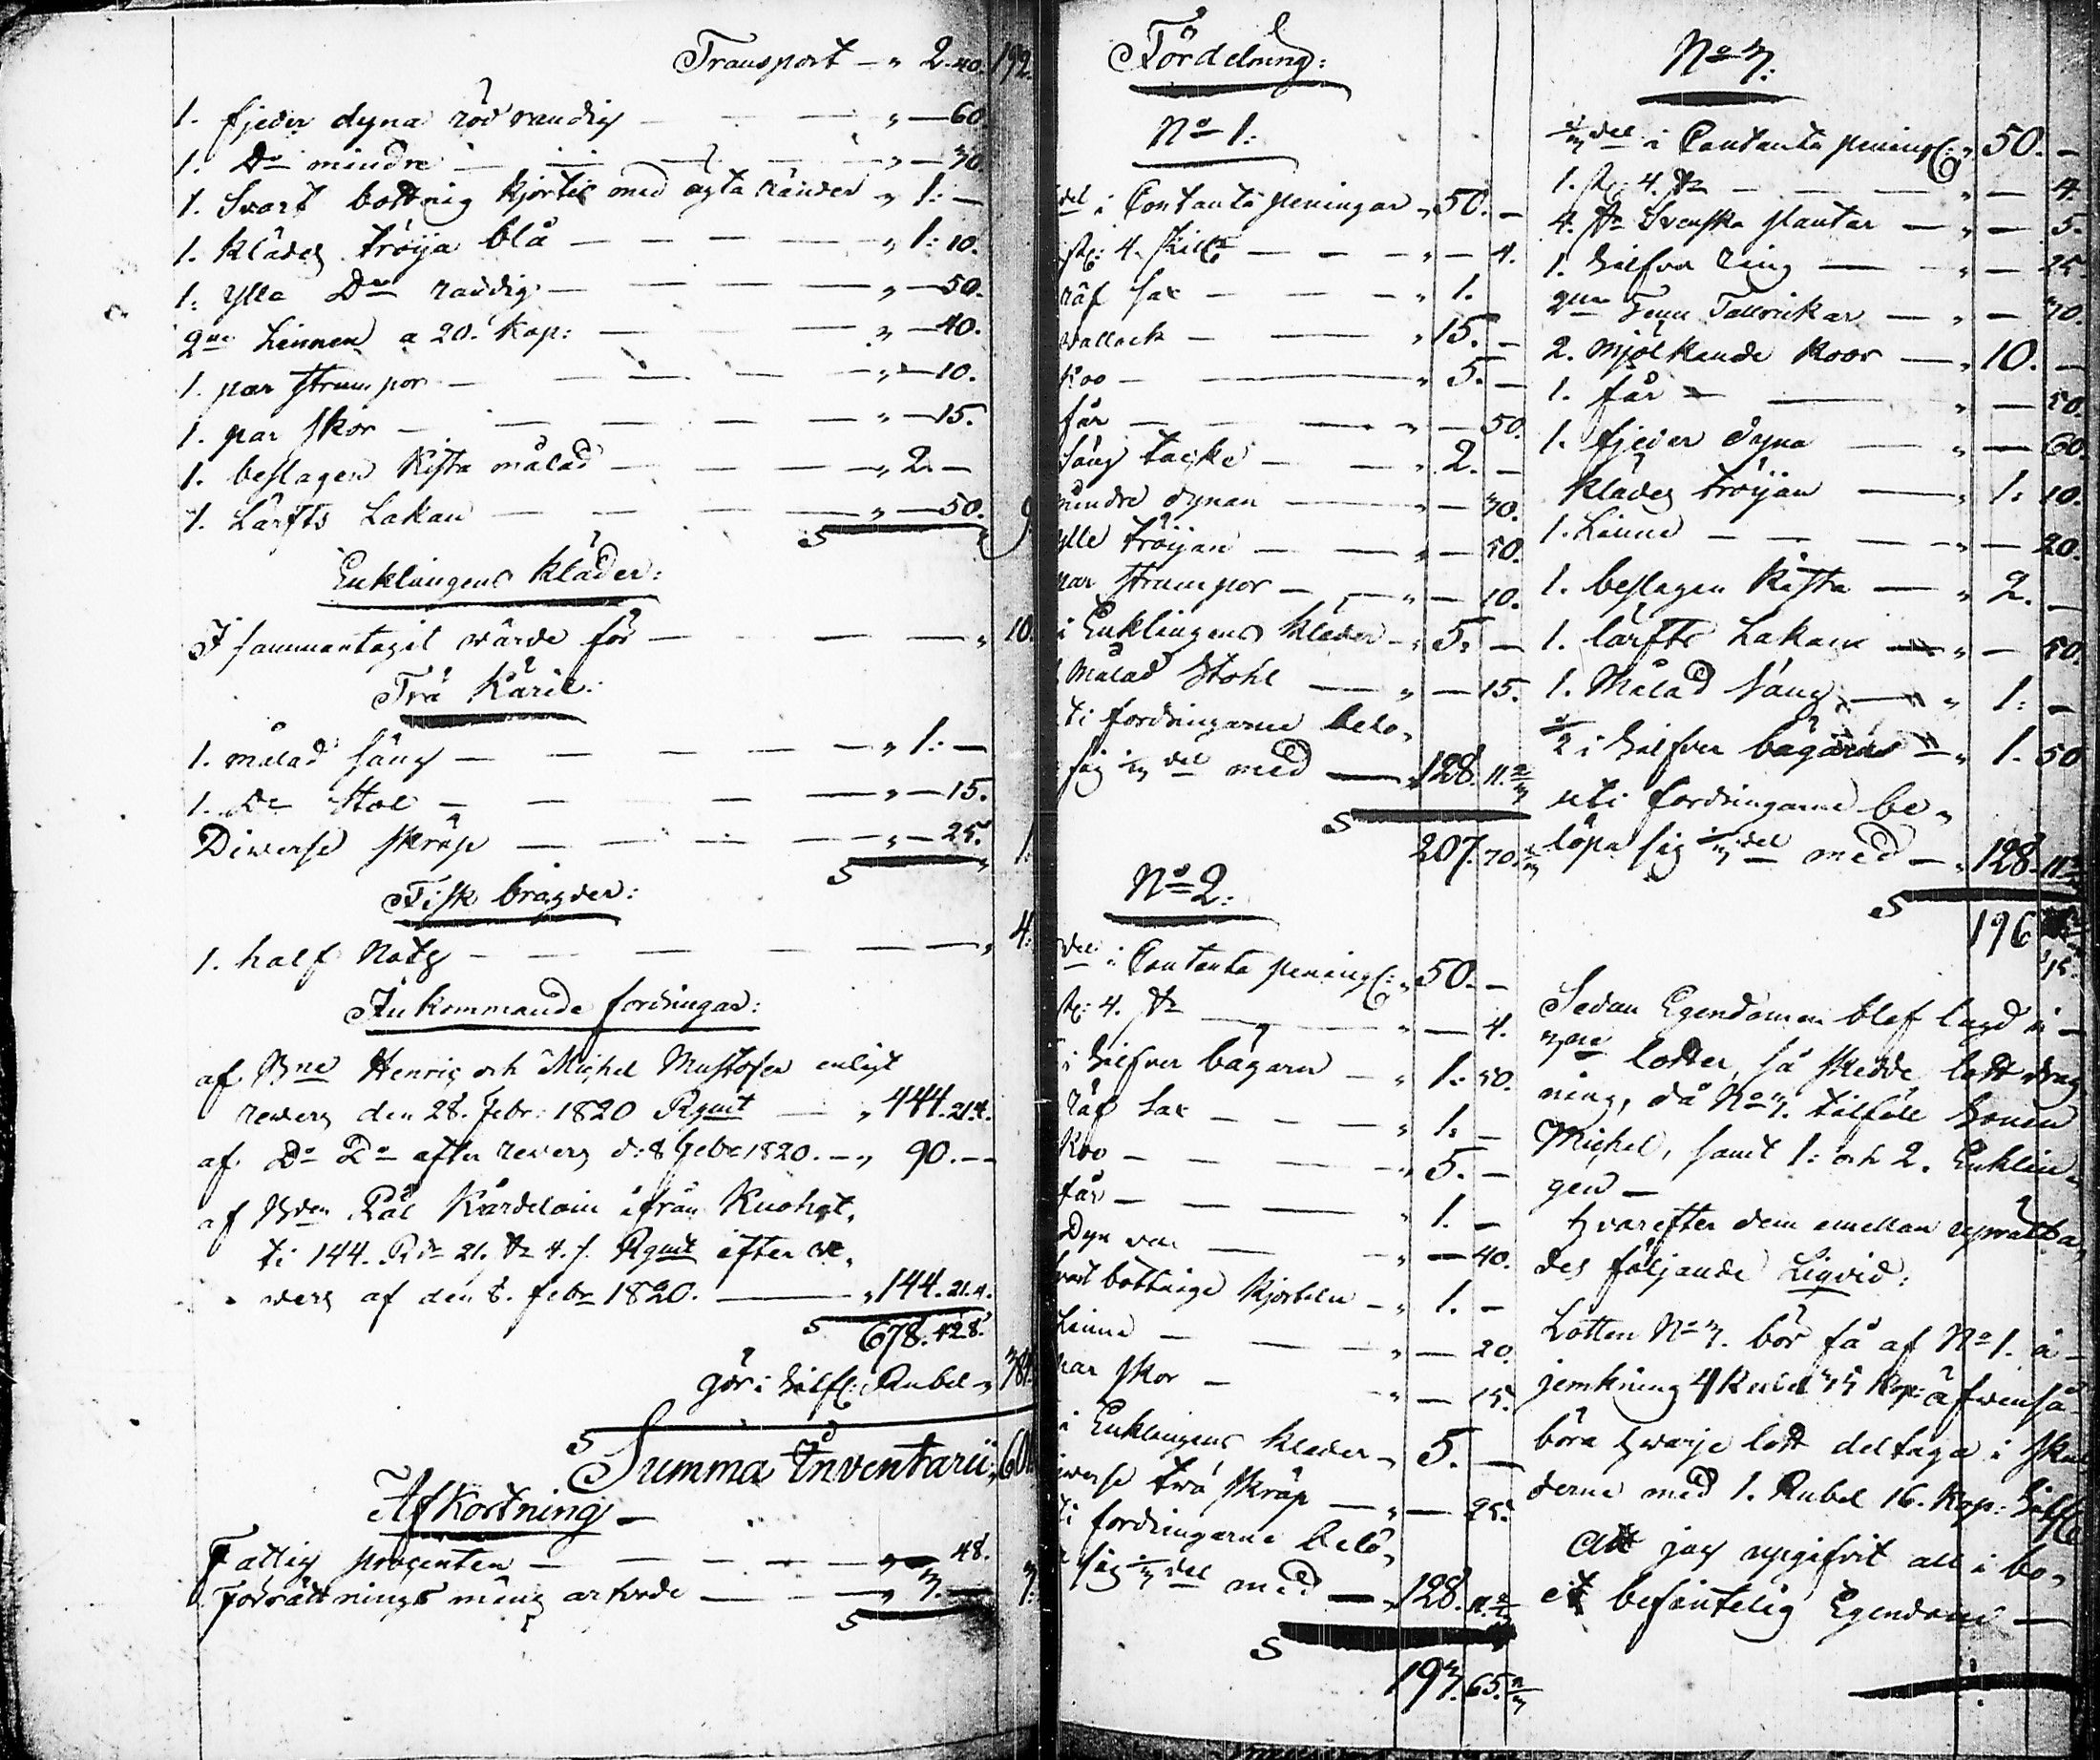 Transport — " 2. 40. 192.
1. fjeder dyna röd randig — " — 60.
1. Do mindre — " — 30.
1. Svart bottnig Kjortel med ägta ränder " 1: —
1. klädes tröija blå — " 1: 10.
1: Ylle Do randig — " — 50.
2ne Linnen a 20. Kop: — " — 40.
1. par strumpor — " — 10.
1. par skor — " — 15.
1. beslagen Kista målad — " 2. —
1. Lärfts Lakan — " — 50. 9
S
Enklingens kläder:
I sammantagit wärde för — " 10.
Trä Käril:
1. målad säng — " 1: —
1. Do Stol — " — 15.
Diverse skräp — " — 25. 1.
S
Fisk bragder:
1. half Notg — " 4:
Inkommande fordringar:
af Bne Henric och Michel Mustosen enligt
revers den 28. Febr: 1820 Rgmt — " 444. 21.4.
af Do Do efter revers d: 8 Febr 1820. — " 90. —
af Bden Pål Kärdelain ifrån Kuohat,
ti 144. Rdr 21. sz 4. r. Rgmt efter re,
vers af den 8. febr 1820. — " 144. 21. 4.
S 678. 42.8.
gör i Silfr: Rubel "
S Summa Inventarii
Afkortning —
Fattig procenten — " — 48.
Förrättnings mäns arfvode — " 3. — 3:
S
Fördelning:
No 1:
del i Contanta peningar " 50. —
st: 4. skill: — " — 4.
räf sax — " 1.
wallack — " 15. —
Koo — " 5. —
får — " — 50.
säng täcke — " 2. —
mindre dynan — " — 30.
ylle tröijan — " — 50.
par strumpor — " — 10.
i Enklingens kläder " 5. —
Målad Stohl — " — 15.
ti fordringarne belö,
sig 1/3 del med — " 128. 11. 2/3
S
207. 70. 2/3
No 2:
del i Contanta pening: " 50. —
st: 4. sz — " — 4.
i Silfver bägaren — " 1. 50.
räf sax — " 1. —
Koo — " 5. —
får — " 1. —
Dynan — " — 40.
svart bottnige Kjortelen — " 1. —
Linne — " — 20.
par skor — " — 15.
i Enklingens kläder " 5. —
iverse trä skräp — " — 25.
ti fordringarne belö,
sig 1/3 del med — " 128. 11. 2/3
S
193. 65. 2/3
No 3:
1/3 del i Contanta pening: " 50. —
1. st: 4. sz — " — 4.
4. st Svenska slantar — " — 5.
1. Silfver Ring — " — 25.
2ne Tenn Tallrikar — " — 30.
2. mjölkande Koor — " 10. —
1. får — " — 50.
1. fjeder dyna — " — 60.
Klädes tröijan — " 1: 10.
1. Linne — " — 20.
1. beslagen Kista — " 2. —
1. lärfts Lakan — " — 50.
1. Målad säng — " 1: —
1/2 i Silfver bägaren " 1. 50
uti fordringarne be,
löpa sig 1/3 del med — " 128. 11 2/3
S
196
Sedan Egendomen blef lagd i
3ne lotter, så skedde lott drag
ning, då No 3. tilföll Sonen
Michel, samt 1: och 2. Enklin,
gen —
Hvarefter dem emellan uprätta,
des följande Liqvid:
Lotten No 3. bör få af No 1. i
jemkning 4 Rubel 75 Kop: äfvenså
böra hvarje lott deltaga i skul
derne med 1. Rubel 16. Kop: Silfr
Att jag upgifvit all i bo,
et befintelig Egendom —